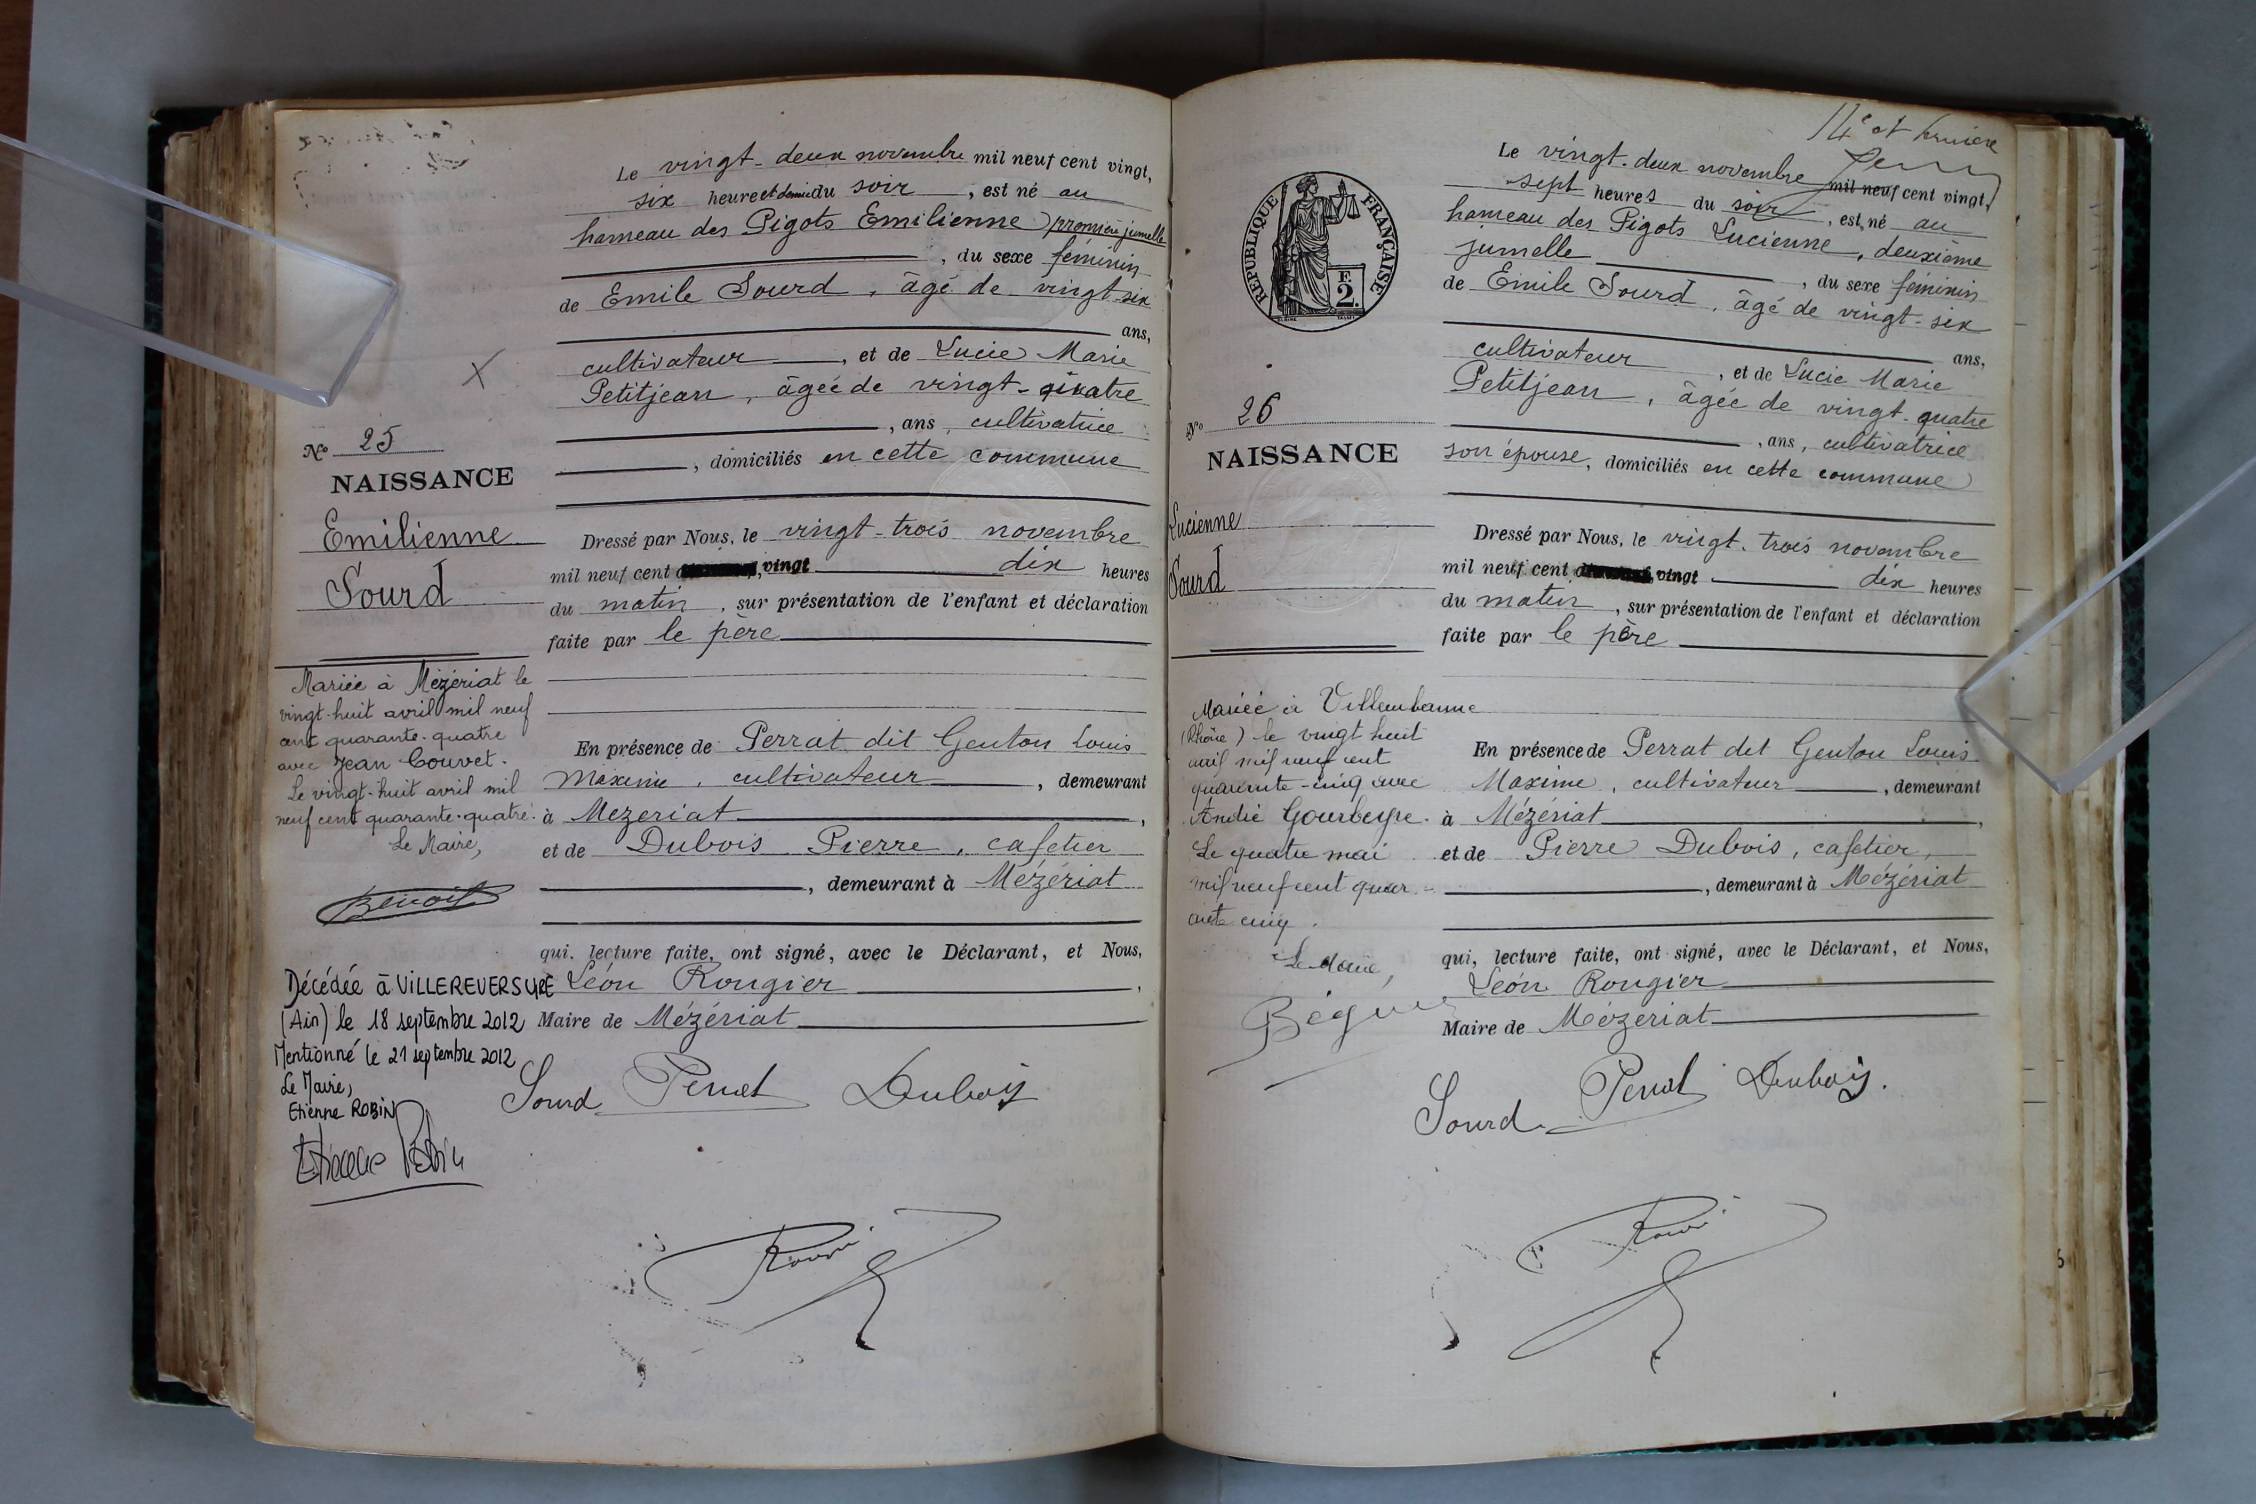 Le vingt-deux novembre mil neuf cent vingt,
six heure et demie du soir, est né au
hameau des Pigots Emilienne première jumelle
, du sexe féminin
de Emile Sourd, âgé de vingt-six
ans,
cultivateur, et de Lucie Marie
Petitjean, âgée de vingt-quatre
, ans, cultivatrice
, domiciliés en cette commune
No 25
NAISSANCE
Emilienne
Sourd
Dressé par Nous, le vingt-trois novembre
mil neuf cent vingt dix heures
du matin, sur présentation de l'enfant et déclaration
faite par le père
Mariée à Mézériat le
vingt-huit avril mil neuf
cent quarante-quatre
avec Jean Couvet.
Le vingt-huit avril mil
neuf cent quarante-quatre.
Le Maire,
Benoit
En présence de Perrat dit Genton Louis
Maxime, cultivateur, demeurant
à Mezeriat,
et de Dubois Pierre, cafetier
, demeurant à Mézériat
qui, lecture faite, ont signé, avec le Déclarant, et Nous,
Léon Rougier,
Maire de Mézériat
Décédée à VILLEREVERSURE
(Ain) le 18 septembre 2012
Mentionné le 21 septembre 2012
Le Maire,
Etienne ROBIN
Etienne Robin
Sourd Perrat Dubois
14e et
Le vingt-deux novembre mil neuf cent vingt,
sept heures du soir, est né au
hameau des Pigots Lucienne, deuxième
jumelle, du sexe féminin
de Emile Sourd, âgé de vingt-six
ans,
cultivateur, et de Lucie Marie
Petitjean, âgée de vingt-quatre
, ans, cultivatrice
son épouse, domiciliés en cette commune
REPUBLIQUE FRANÇAISE
F.
2.
No 26
NAISSANCE
Lucienne
Sourd
Dressé par Nous, le vingt-trois novembre
mil neuf cent vingt dix heures
du matin, sur présentation de l'enfant et déclaration
faite par le père
Mariée à Villeurbanne
(Rhône) le vingt huit
avril mil neuf cent
quarante-cinq avec
André Gourbeyre.
Le quatre mai
mil neuf cent quar-
ante cinq.
Le Maire,
En présence de Perrat dit Genton Louis
Maxime, cultivateur, demeurant
à Mézériat,
et de Pierre Dubois, cafetier,
, demeurant à Mézériat
qui, lecture faite, ont signé, avec le Déclarant, et Nous,
Léon Rougier
Maire de Mézériat
Sourd Perrat Dubois.